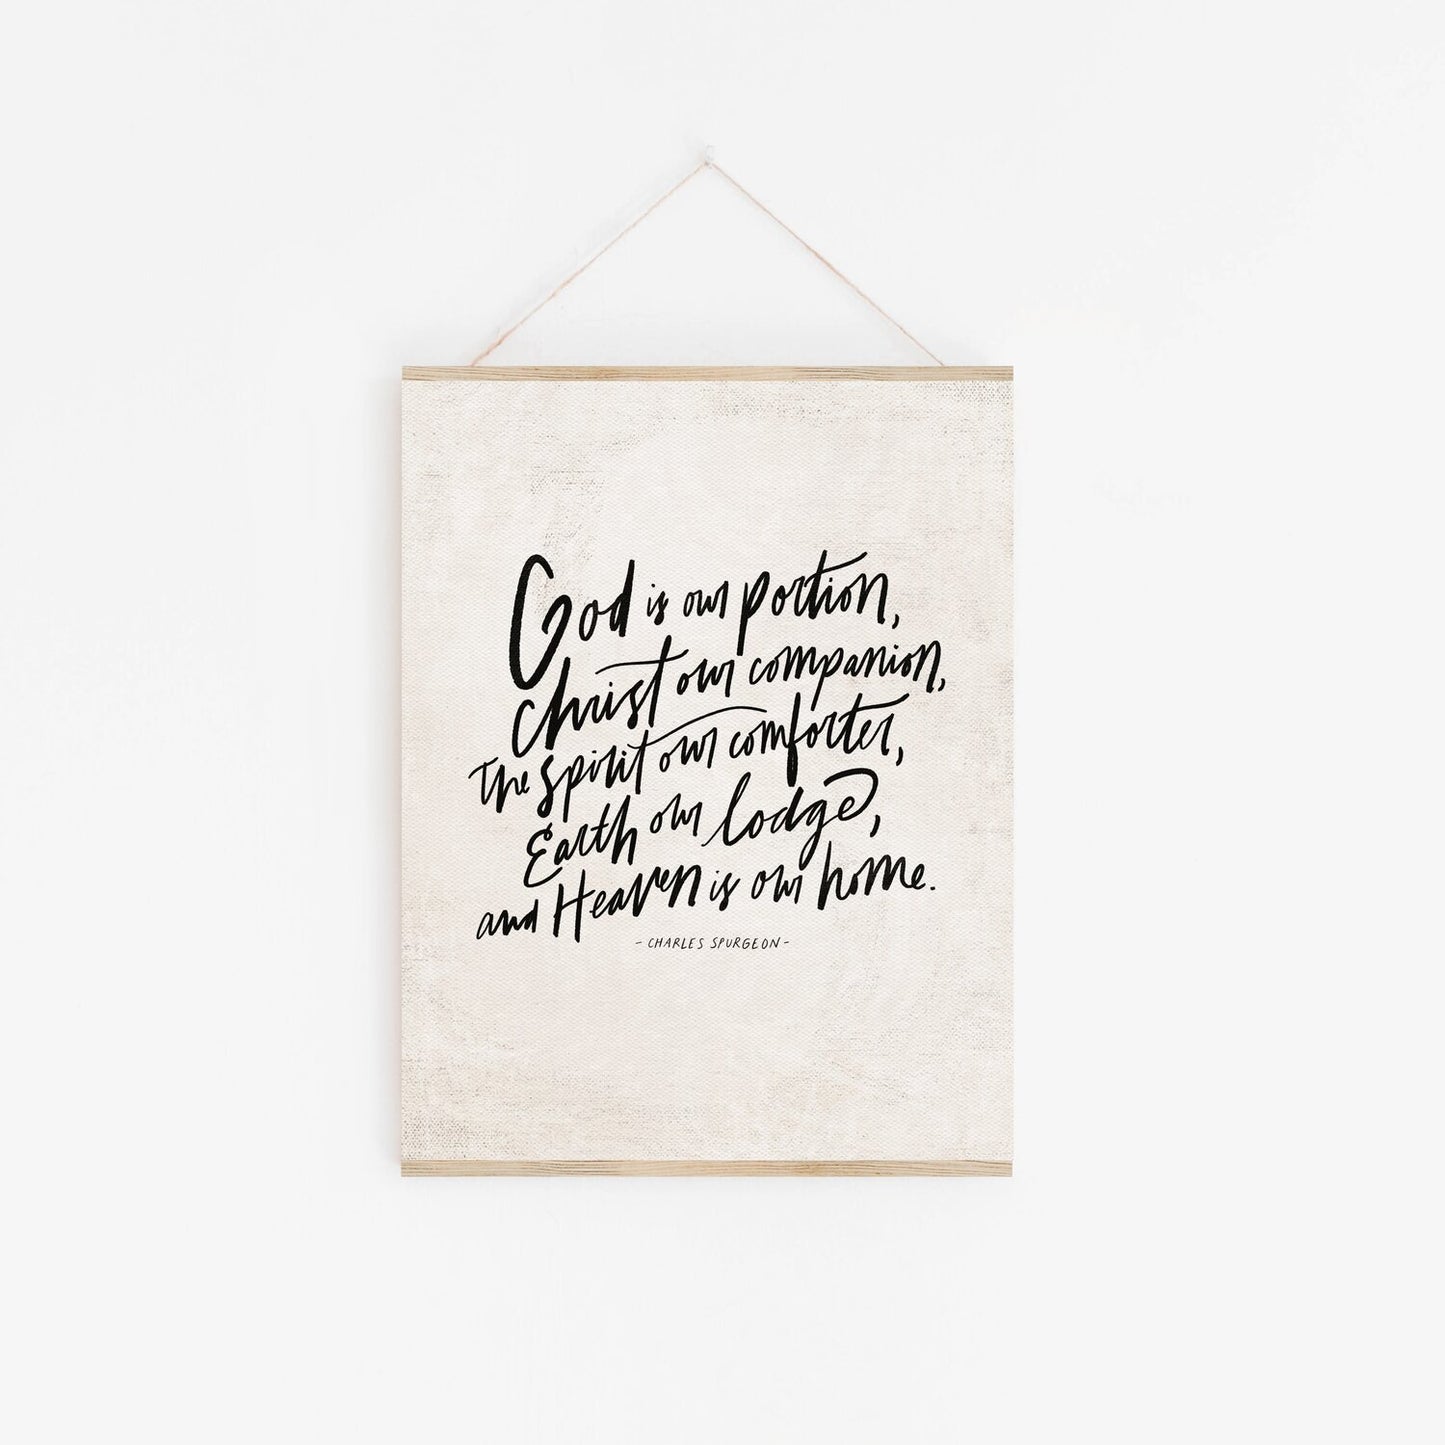 God is our portion,
Christ our companion,
The Spirit our comforter,
Earth our lodge,
and Heaven is our home.
- CHARLES SPURGEON -